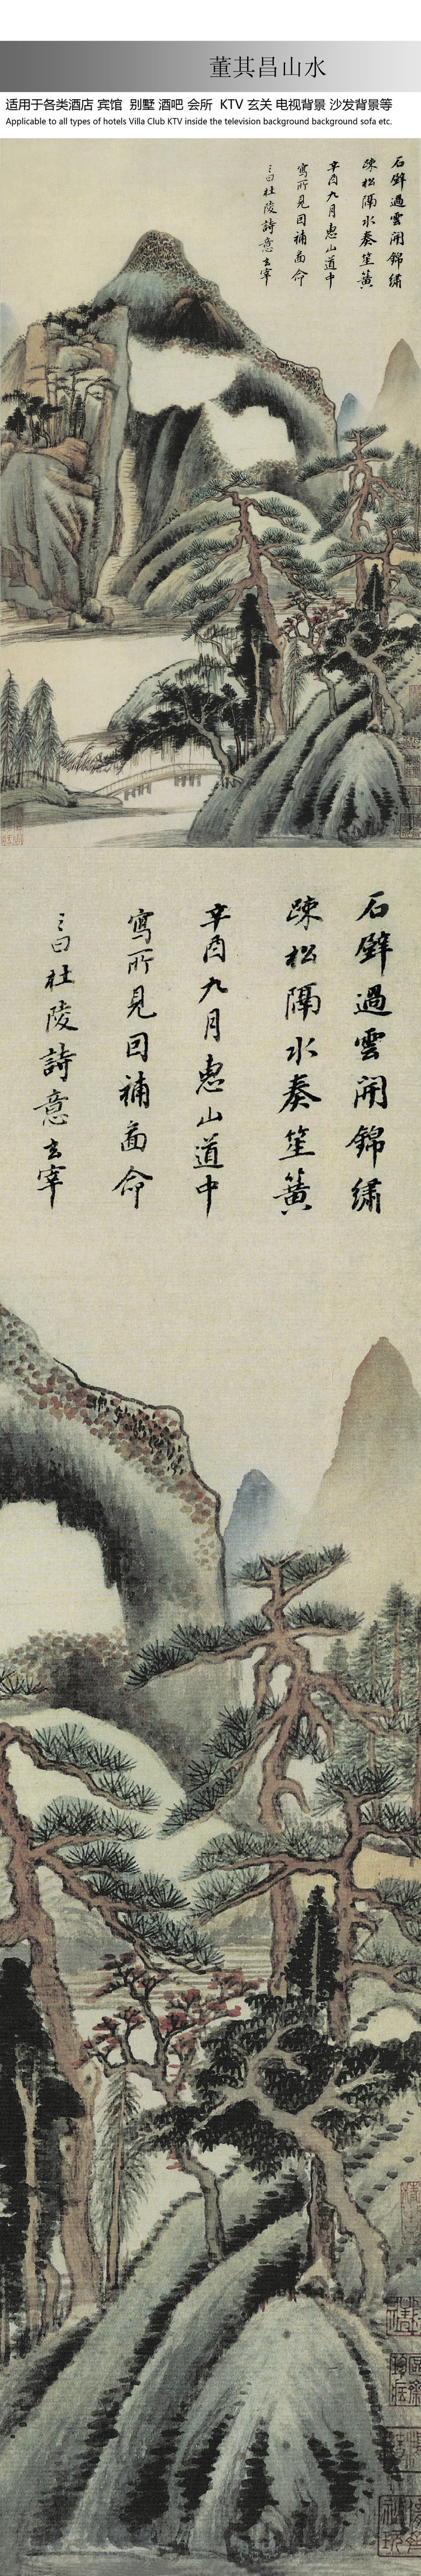 董其昌山水
适用于各类酒店 宾馆 别墅 酒吧 会所 KTV 玄关 电视背景 沙发背景等
Applicable to all types of hotels Villa Club KTV inside the television background background sofa etc.
石壁過雲開錦繡
疎松隔水奏笙簧
辛酉九月惠山道中
寫所見回補圖命
之曰杜陵詩意玄宰
石壁過雲開錦繡
疎松隔水奏笙簧
辛酉九月惠山道中
寫所見回補圖命
之曰杜陵詩意玄宰